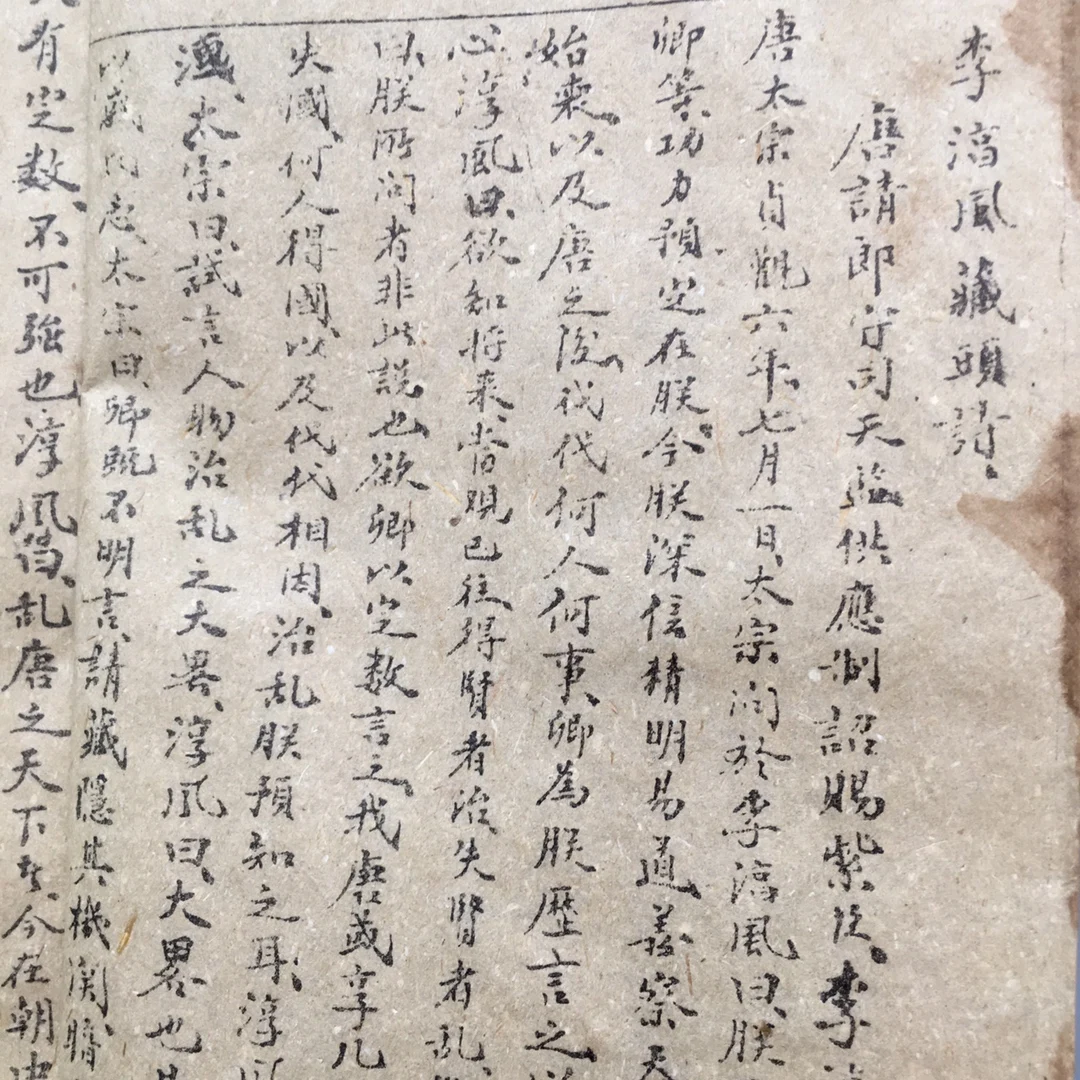 李淳風藏頭詩
唐請郎守司天監供應制詔賜紫臣李
唐太宗貞觀六年七月一日太宗问於李淳風曰朕
卿筭功力預定在朕今朕深信精明易道義察天
始衰以及唐之後伐代何人何事卿為朕歷言之
心淳風曰欲知将来當观已往得賢者治失賢者乱
曰朕所问者非此説也欲卿以定数言之我唐或享几
失國何人得國以及代代相因治乱朕預知之耳淳
太宗曰試言人物治乱之大畧淳风曰大畧也
太宗曰卿既不明言請藏隱其機関
有定数不可強也淳风曰乱唐之天下者今在朝中